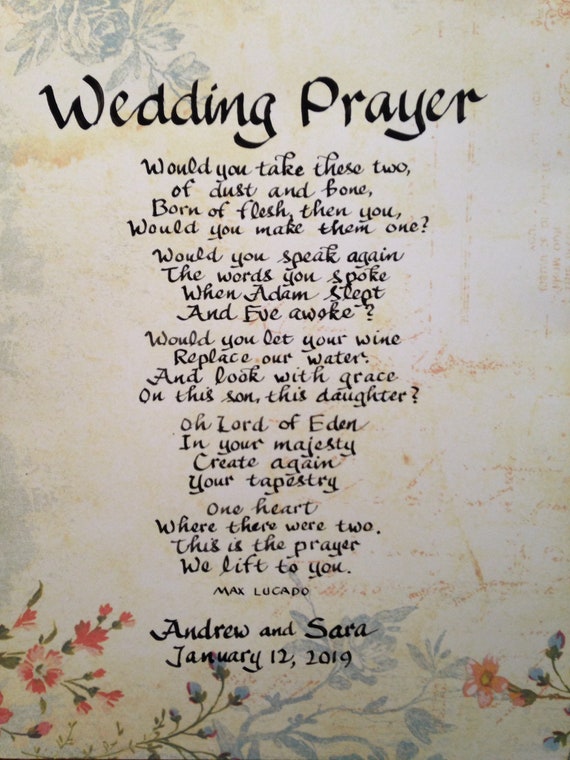 Wedding Prayer
Would you take these two,
of dust and bone,
Born of flesh, then you,
Would you make them one?
Would you speak again
The words you spoke
When Adam slept
And Eve awoke?
Would you let your wine
Replace our water.
And look with grace
On this son, this daughter?
Oh Lord of Eden
In your majesty
Create again
Your tapestry
One heart
Where there were two.
This is the prayer
We lift to you.
MAX LUCADO
Andrew and Sara
January 12, 2019